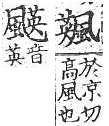 於京切
高風也
音
英